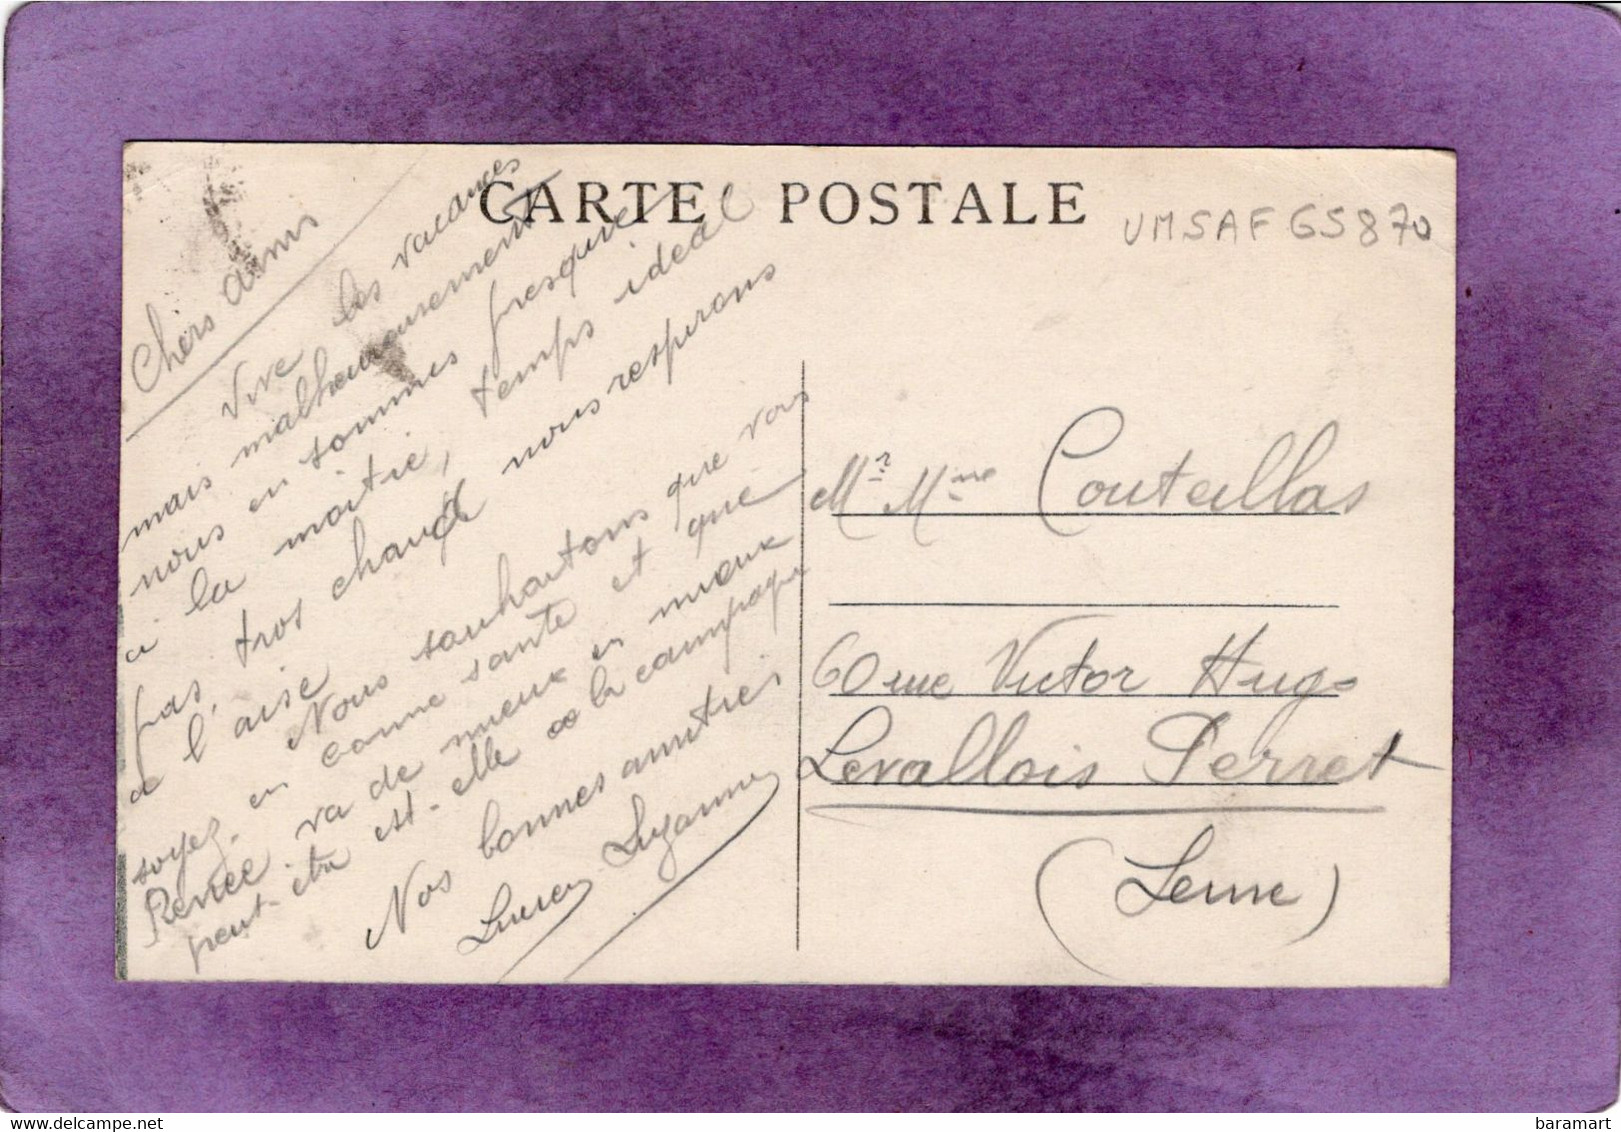 CARTE POSTALE
UMSAF GS 870
Chers amis
Vive les vacances
mais malheureusement
nous en sommes presque
a la moitie, temps ideal
pas tros chaud nous respirons
a l'aise
Nous souhaitons que vous
soyez en bonne sante et que
Renée va de mieux en mieux
peut-etre est-elle a la campagne
Nos bonnes amities
Lucien Suzanne
Mr Mme Couteillas
60 rue Victor Hugo
Levallois Perret
(Seine)
www.delcampe.net
baramart